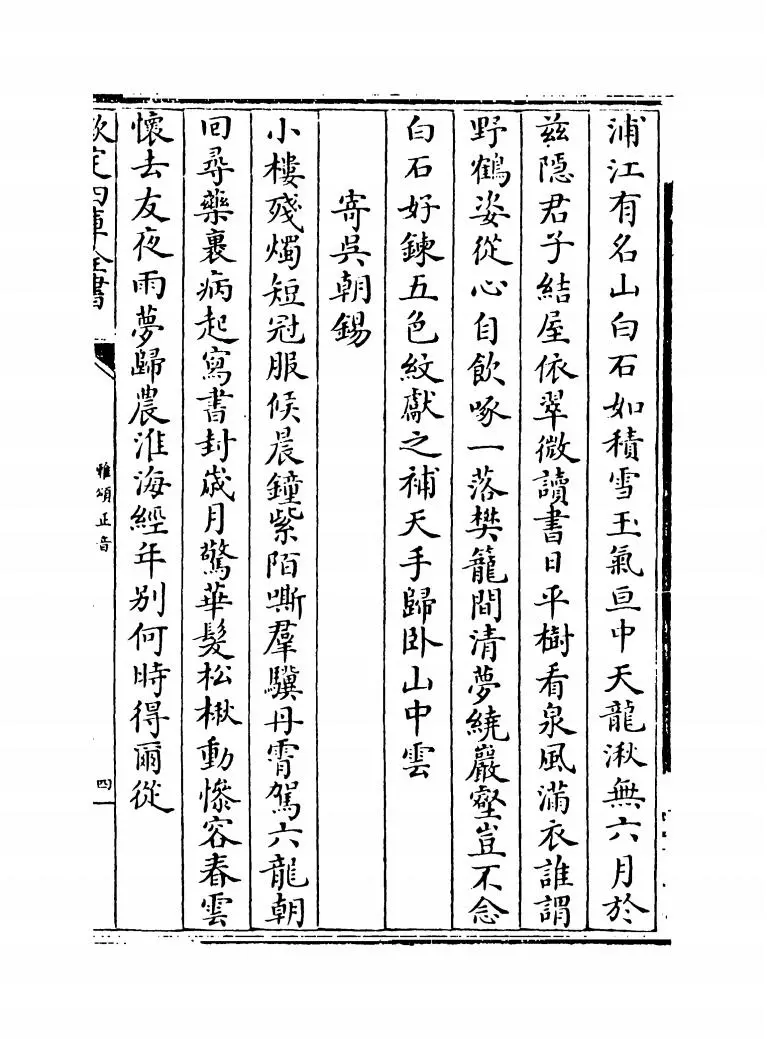 浦江有名山白石如積雪玉氣亘中天龍湫無六月於
茲隱君子結屋依翠微讀書日平樹看泉風滿衣誰謂
野鶴姿從心自飲啄一落樊籠間清夢繞巖壑豈不念
白石好鍊五色紋獻之補天手歸卧山中雲
寄吳朝錫
小樓殘燭短冠服候晨鐘紫陌嘶羣驥丹霄駕六龍朝
回尋藥裹病起寫書封歲月驚華髮松楸動慘容春雲
懷去友夜雨夢歸農淮海經年别何時得爾從
欽定四庫全書
雅頌正音
四